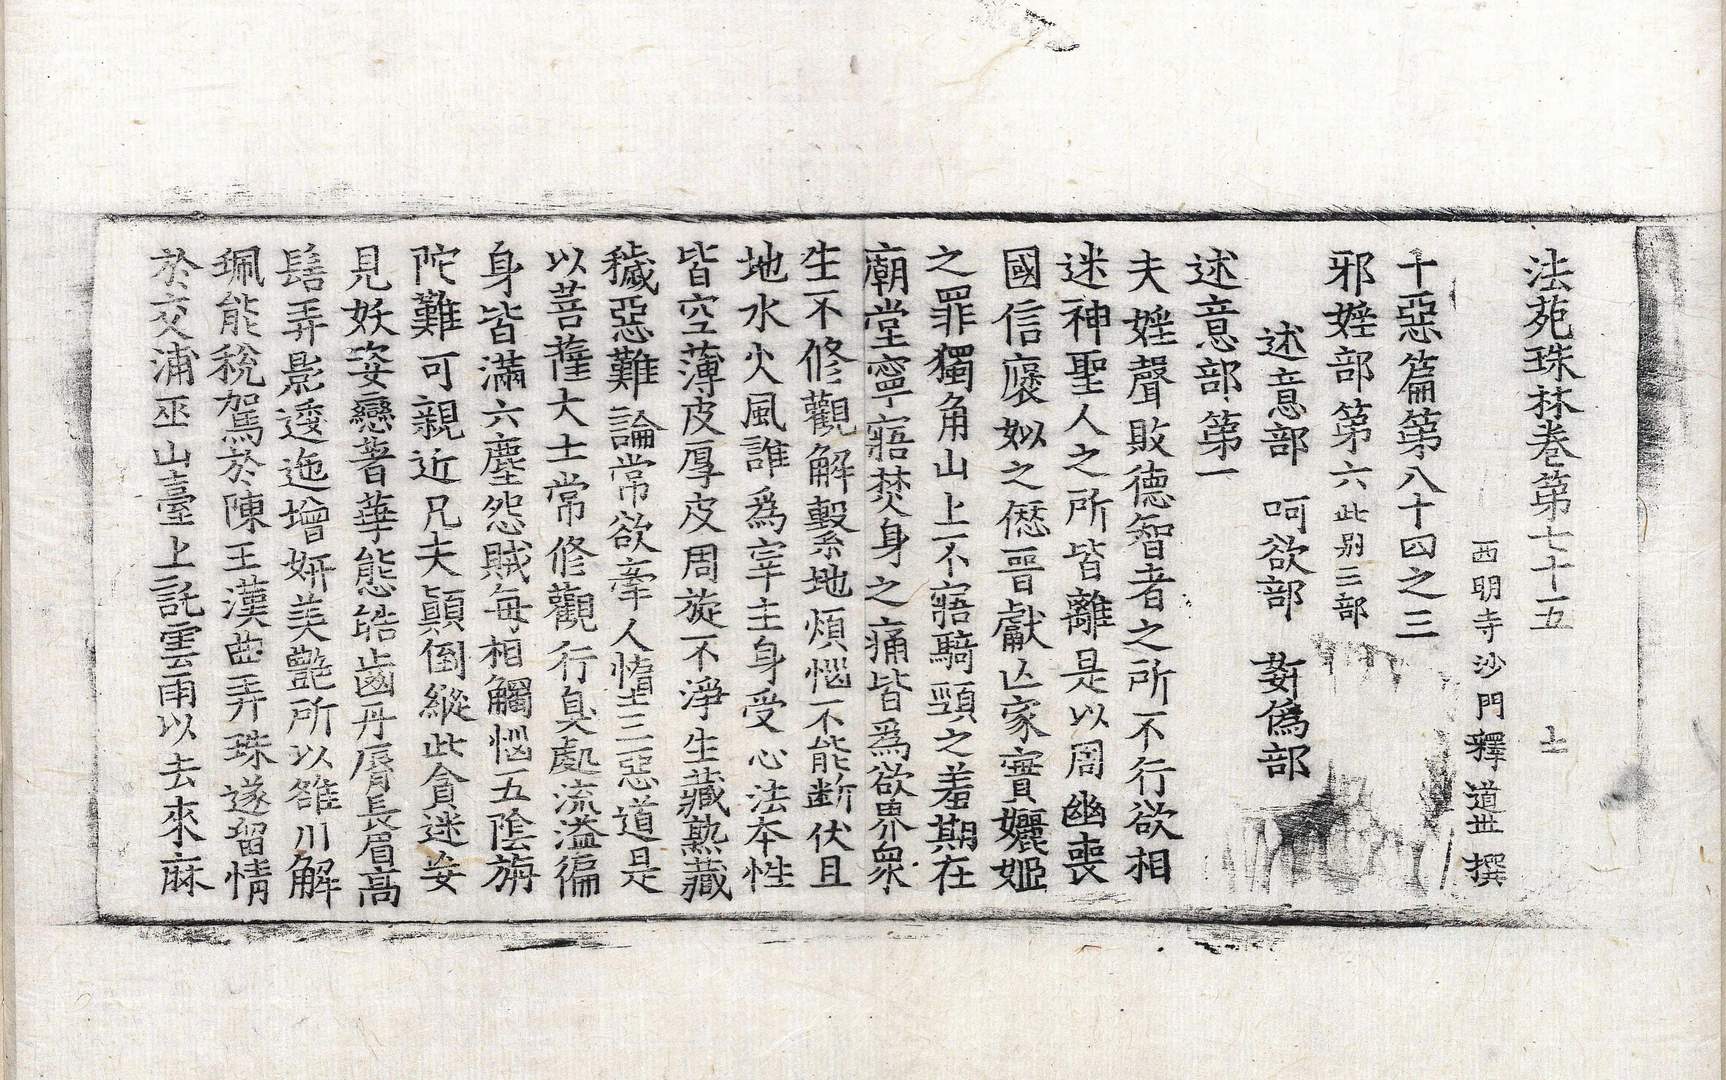 法苑珠林卷第七十五　上
西明寺沙門釋道世撰
十惡篇第八十四之三
邪婬部第六此別三部
述意部　呵欲部　姧偽部
述意部第一
夫婬聲敗德智者之所不行欲相
迷神聖人之所皆離是以周幽喪
國信襃姒之僁晉獻亾家實孋姬
之罪獨角山上不寤騎頸之羞期在
廟堂寧寤焚身之痛皆爲欲界衆
生不修觀解繫地煩惱不能斷伏且
地水火風誰爲宰主身受心法本性
皆空薄皮厚皮周旋不淨生藏熟藏
穢惡難論常欲牽人墮三惡道是
以菩薩大士常修觀行臭處流溢徧
身皆滿六塵怨賊每相觸惱五陰旃
陀難可親近凡夫顛倒縱此貪迷妄
見妖姿戀著華態皓齒丹脣長眉高
髻弄影逶迤增妍美艷所以雒川解
珮能稅駕於陳王漢曲弄珠遂留情
於交浦巫山臺上託雲雨以去來麻